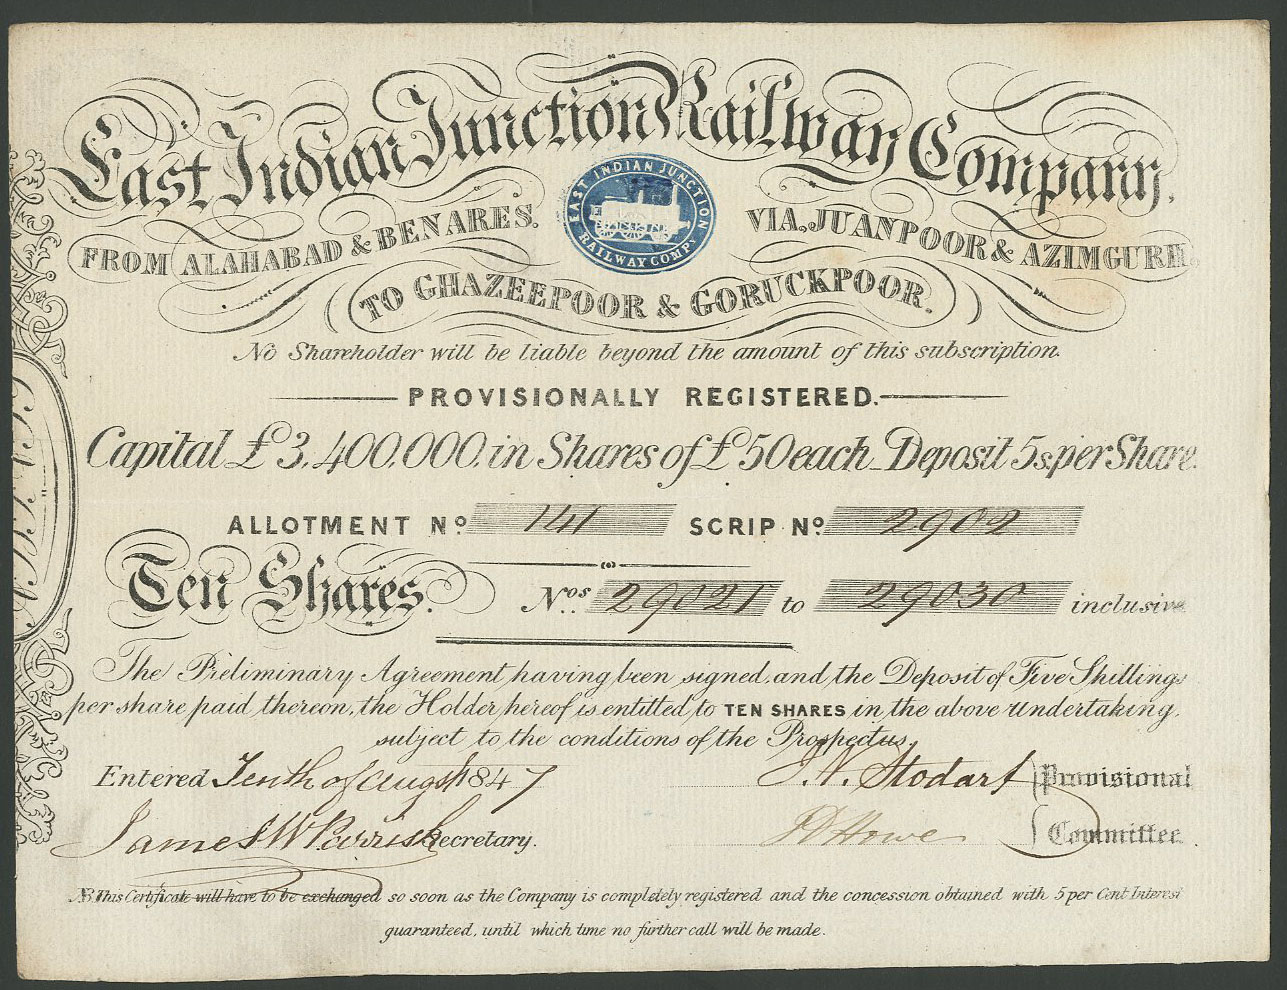 East Indian Junction Railway Company,
EAST INDIAN JUNCTION
RAILWAY COMPY
FROM ALAHABAD & BENARES. VIA, JUANPOOR & AZIMGURH.
TO GHAZEEPOOR & GORUCKPOOR.
No Shareholder will be liable beyond the amount of this subscription.
PROVISIONALLY REGISTERED.
Capital £3,400,000, in Shares of £50 each_Deposit 5s. per Share.
ALLOTMENT No. 141 SCRIP No. 2902
Ten Shares. Nos. 29021 to 29030 inclusive
The Preliminary Agreement having been signed, and the Deposit of Five Shillings
per share paid thereon, the Holder hereof is entitled to TEN SHARES in the above Undertaking,
subject to the conditions of the Prospectus.
Entered Tenth of Augst 1847 J. N. Stodart Provisional
James W Parrish Secretary. Howe Committee.
NB. This Certificate will have to be exchanged so soon as the Company is completely registered and the concession obtained with 5 per Cent Interest
guaranteed, until which time no further call will be made.